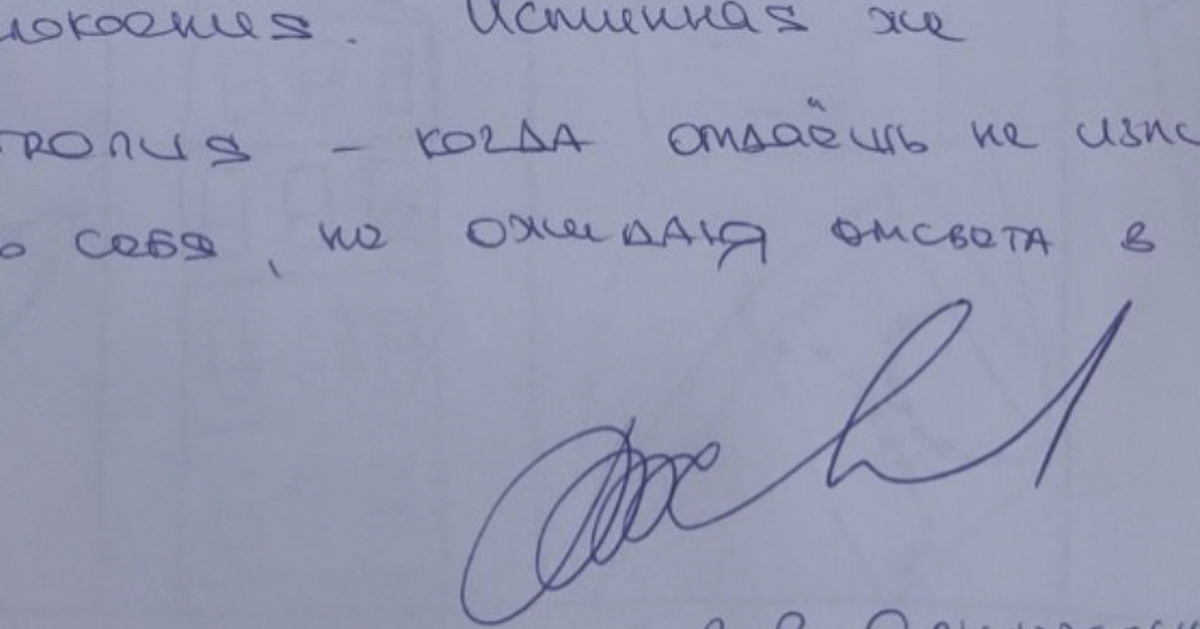 покоения. Истинная же
тропия – когда отдаёшь не изпо
о себя, не ожидая отсвета в